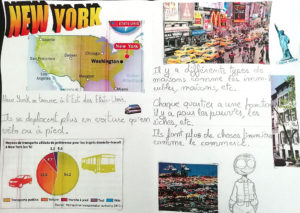 NEW YORK
ÉTATS-UNIS
New York
San Francisco
Chicago
Washington
Los Angeles
New York se trouve à l'Est des États-Unis.
Ils se déplacent plus en voiture qu'en
vélo ou à pied.
Moyens de transport utilisés de préférence pour les trajets domicile-travail
à New York (en %)
Transports publics
Voiture
Marche à pied
Taxi
Vélo
Il y a différents types de
maisons comme les imme
ubles, maisons, etc.
Chaque quartier a une fonction
il y a pour les pauvres, les
riches, etc.
Ils font plus de choses
comme le commerce.